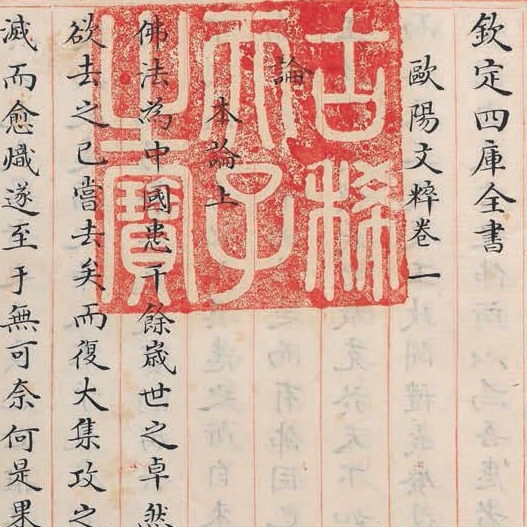 欽定四庫全書
歐陽文粹卷一
論
本論上
佛法為中國患千餘歲世之卓然
欲去之已嘗去矣而復大集攻之
滅而愈熾遂至于無可奈何是果
古稀
天子
之寶